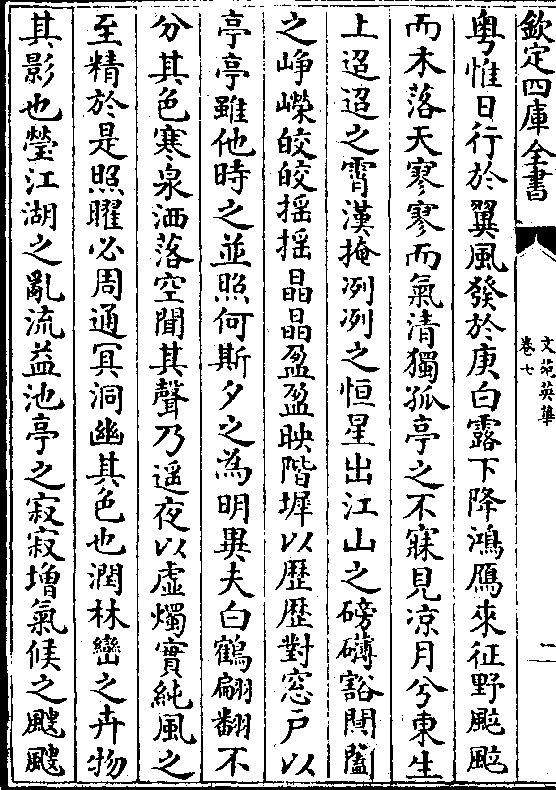 欽定四庫全書
文苑英華
卷七
二
粤惟日行於翼風發於庚白露下降鴻鴈來征野颭颭
而木落天寥寥而氣清獨孤亭之不寐見凉月兮東生
上迢迢之霄漢掩冽冽之恒星出江山之磅礴豁閬闔
之崢嶸皎皎揺揺晶晶盈盈映階墀以歴歴對窓戸以
亭亭雖他時之並照何斯夕之為明異夫白鶴翩翻不
分其色寒泉洒落空聞其聲乃遥夜以虚燭實純風之
至精於是照曜必周通冥洞幽其色也潤林巒之卉物
其影也瑩江湖之亂流益池亭之寂寂増氣候之颼颼